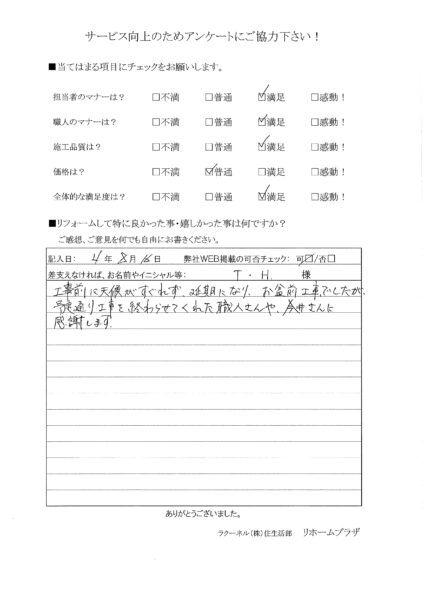 サービス向上のためアンケートにご協力下さい！
■当てはまる項目にチェックをお願いします。
担当者のマナーは？ □不満 □普通 ☑満足 □感動！
職人のマナーは？ □不満 □普通 ☑満足 □感動！
施工品質は？ □不満 □普通 ☑満足 □感動！
価格は？ □不満 ☑普通 □満足 □感動！
全体的な満足度は？ □不満 □普通 ☑満足 □感動！
■リフォームして特に良かった事・嬉しかった事は何ですか？
ご感想、ご意見を何でも自由にお書きください。
記入日： 4 年 8 月 16 日 弊社WEB掲載の可否チェック： 可☑/否□
差支えなければ、お名前やイニシャル等： T ・ H. 様
工事前に天候がすぐれず、延期になり、お盆前工事でしたが、
予定通り工事を終わらせてくれた職人さんや、今井さんに
感謝します。
ありがとうございました。
ラクーネル（株）住生活部 リホームプラザ